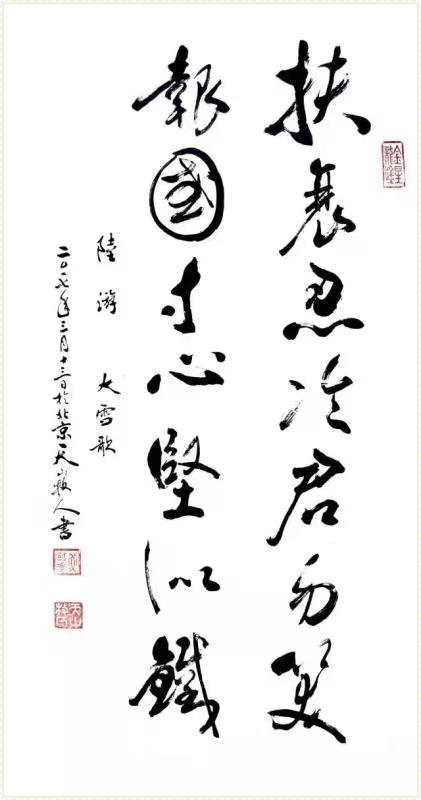 扶衰忍冷君勿笑
報國寸心堅似鐵
陸游 大雪歌
二〇一七年三月十三日於北京天山牧人書